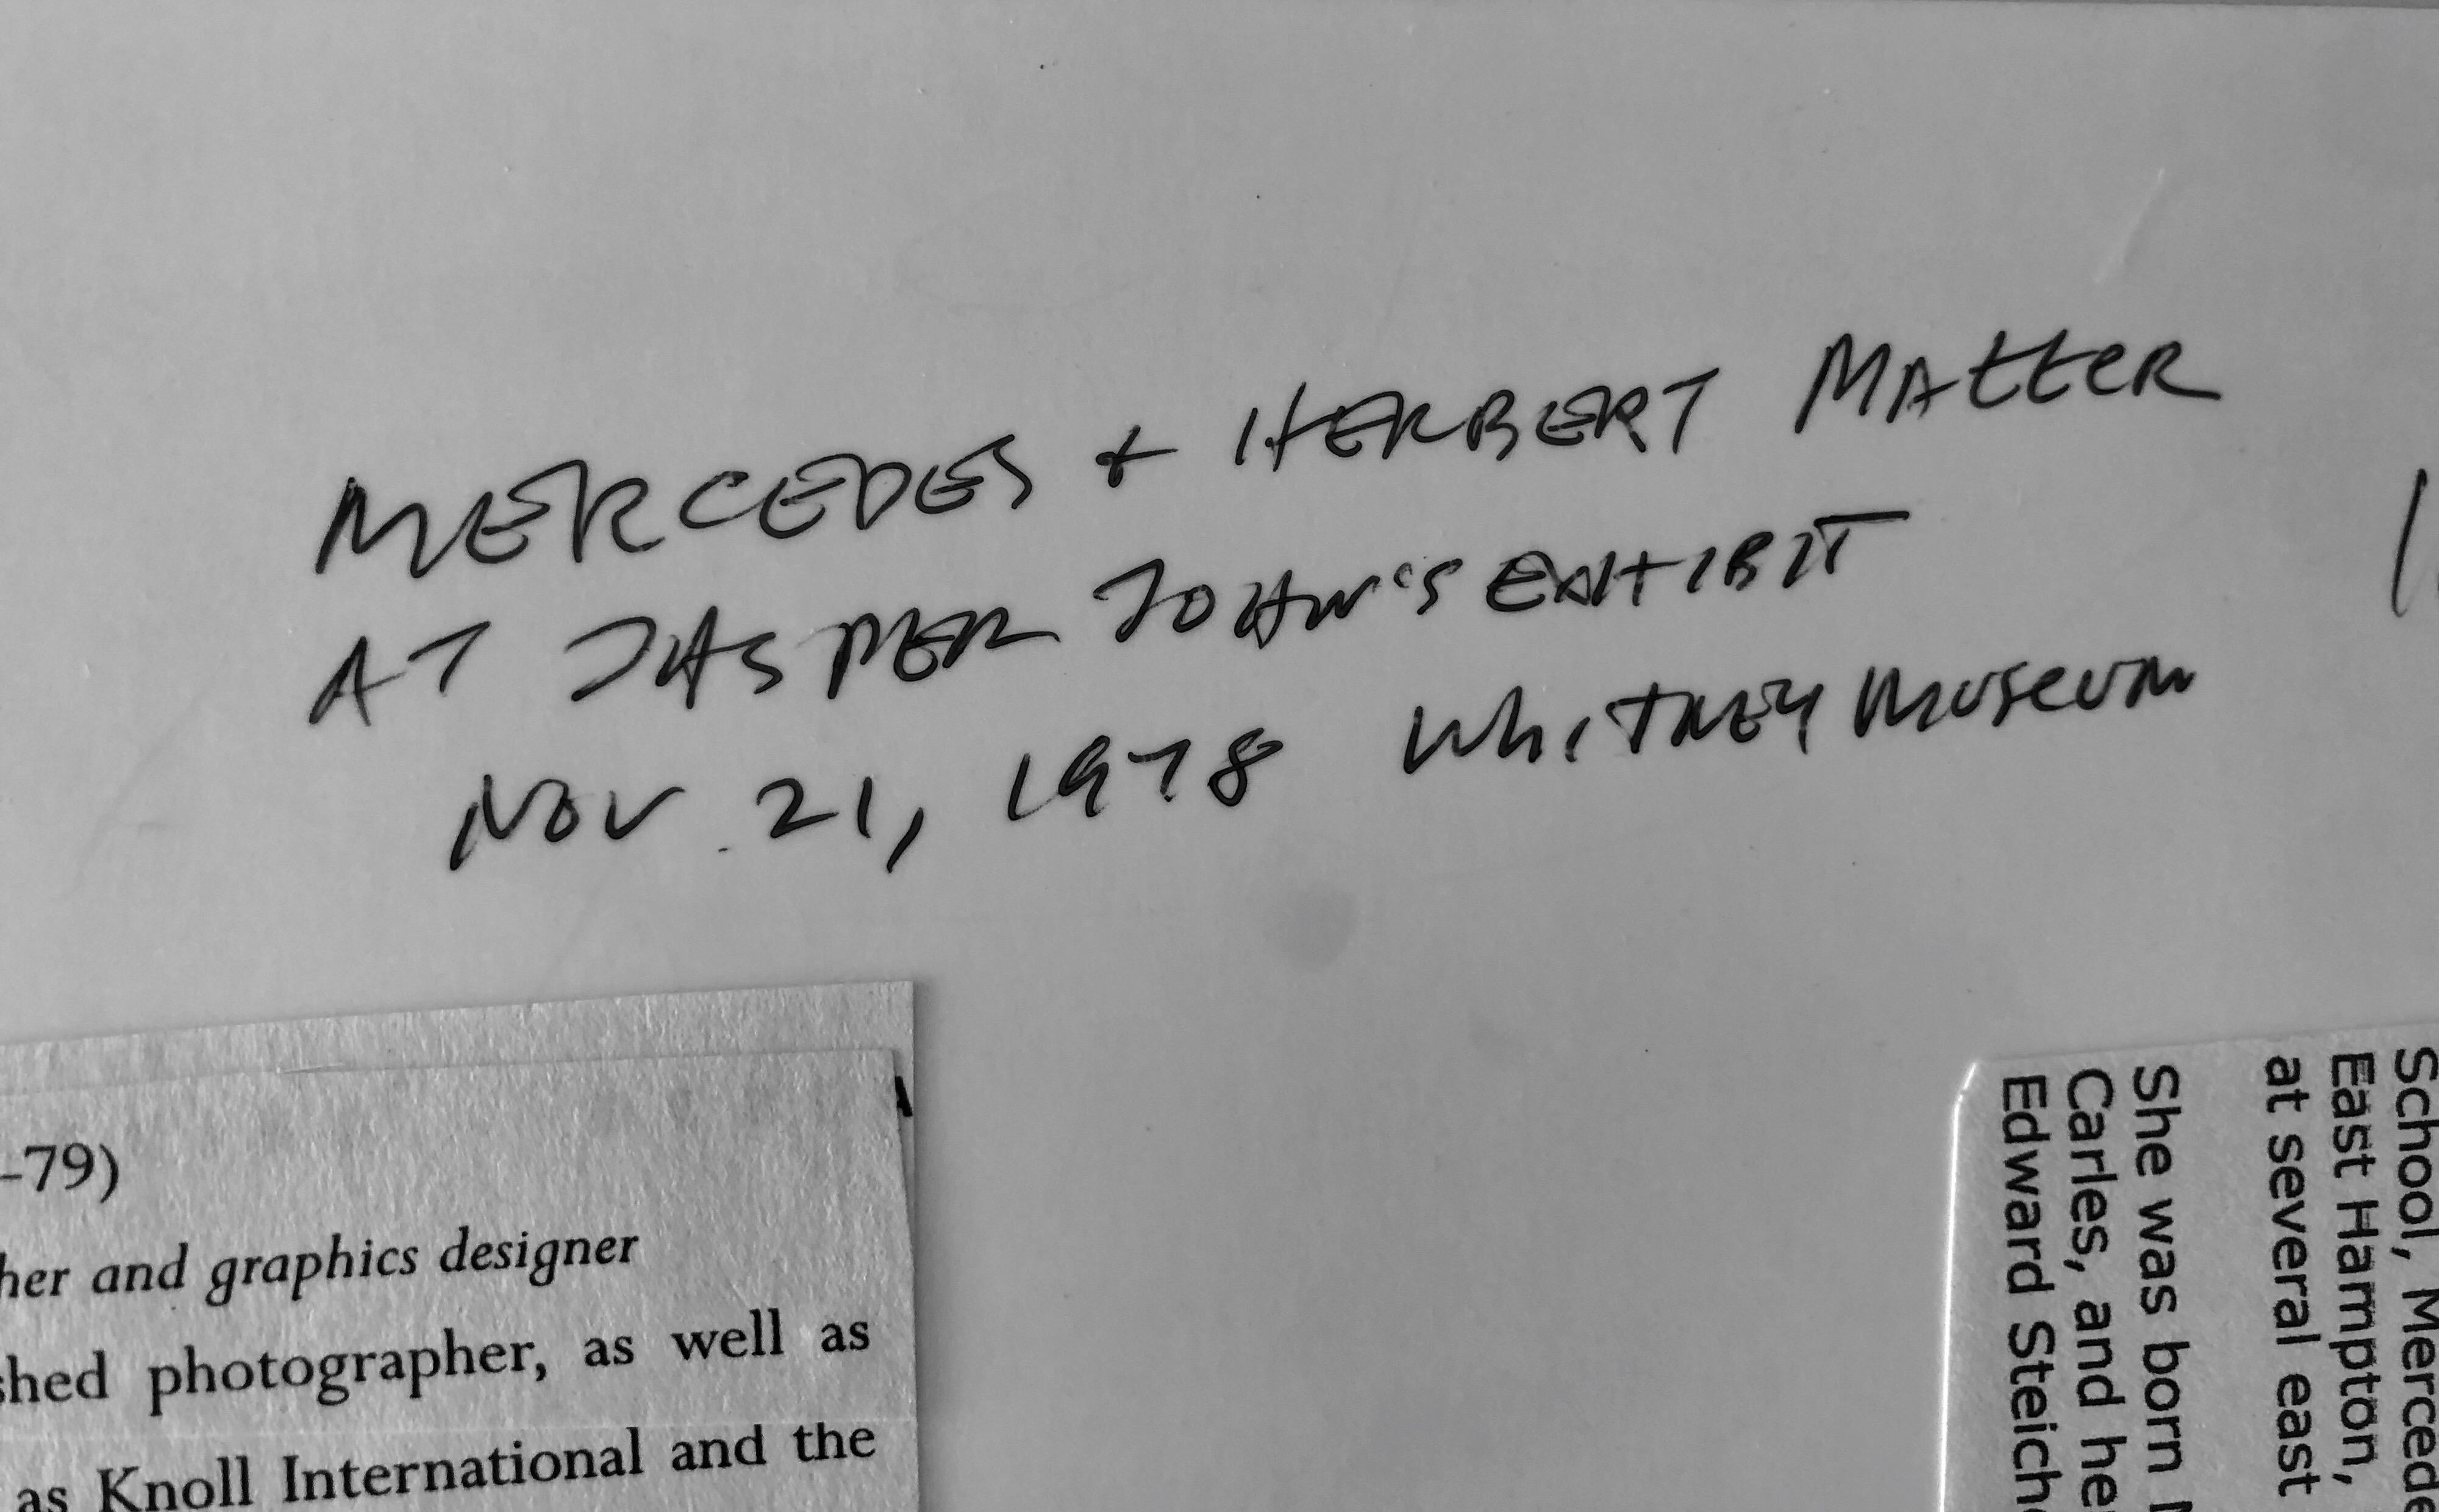 MERCEDES + HERBERT MAtteR
AT JASPER JOHN'S EXHIBIT
NOV 21, 1978 WhITNEY MUSEUM
-79)
her and graphics designer
shed photographer, as well as
as Knoll International and the
School, Mercede
East Hampton,
at several east
She was born
Carles, and he
Edward Steich